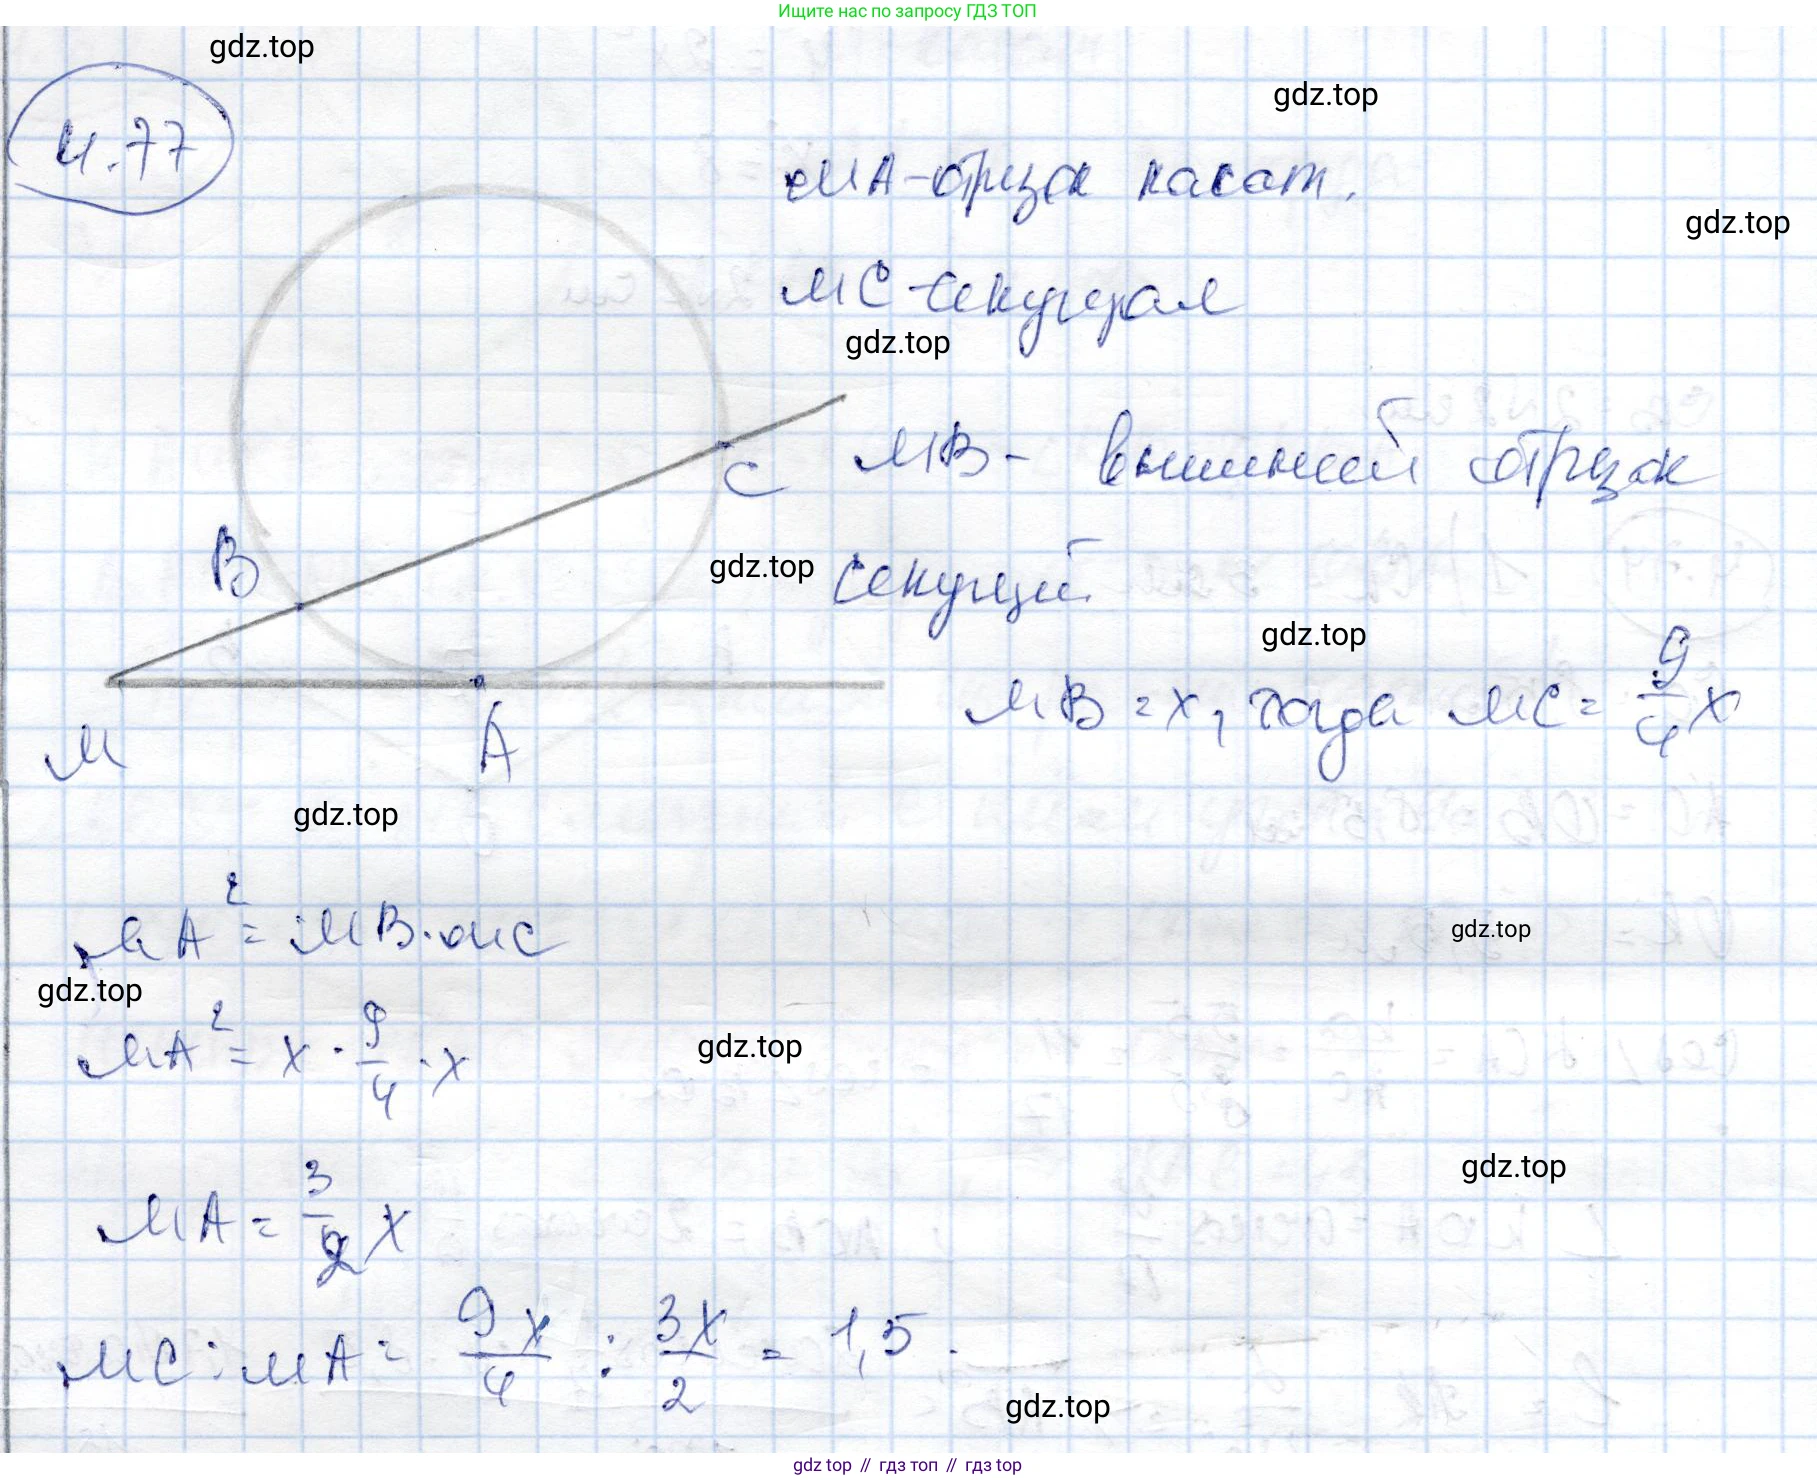 Ищите нас по запросу ГДЗ ТОП
gdz.top
gdz.top
4.77
MA - отрезок касат.
gdz.top
MC - секущая
gdz.top
C
MB - внешний отрезок
B
gdz.top
секущей
gdz.top
MB = x, тогда MC = 9/4 x
M
A
gdz.top
MA² = MB · MC
gdz.top
gdz.top
MA² = x · 9/4 · x
gdz.top
gdz.top
MA = 3/2 x
MC : MA = 9x/4 : 3x/2 = 1,5.
gdz.top
gdz top // гдз топ // гдз top